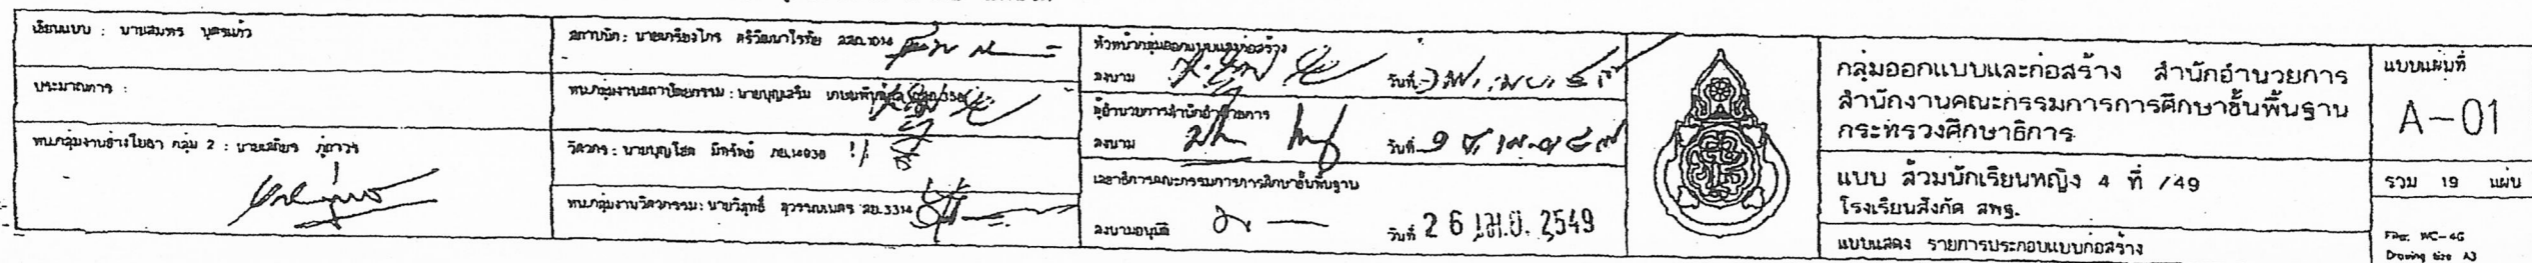 เขียนแบบ : นายสมพร บุตรแก้ว
ประมาณการ :
หน.กลุ่มงานช่างโยธา กลุ่ม 2 : นายเสถียร
สถาปนิก : นายเกรียงไกร ศรีวัฒนาโรทัย
หน.กลุ่มงานสถาปัตยกรรม : นายบุญเสริม
วิศวกร : นายบุญโชค มีทรัพย์ ภย.14938
หน.กลุ่มงานวิศวกรรม : นายวิสุทธิ์ สุวรรณเนตร สย.3314
หัวหน้ากลุ่มออกแบบและก่อสร้าง
ลงนาม วันที่
ผู้อำนวยการสำนักอำนวยการ
ลงนาม วันที่
เลขาธิการคณะกรรมการการศึกษาขั้นพื้นฐาน
ลงนามอนุมัติ วันที่ 26 เม.ย. 2549
กลุ่มออกแบบและก่อสร้าง สำนักอำนวยการ
สำนักงานคณะกรรมการการศึกษาขั้นพื้นฐาน
กระทรวงศึกษาธิการ
แบบ ส้วมนักเรียนหญิง 4 ที่ /49
โรงเรียนสังกัด สพฐ.
แบบแสดง รายการประกอบแบบก่อสร้าง
แบบแผ่นที่
A-01
รวม 19 แผ่น
File: WC-4G
Drawing size A3